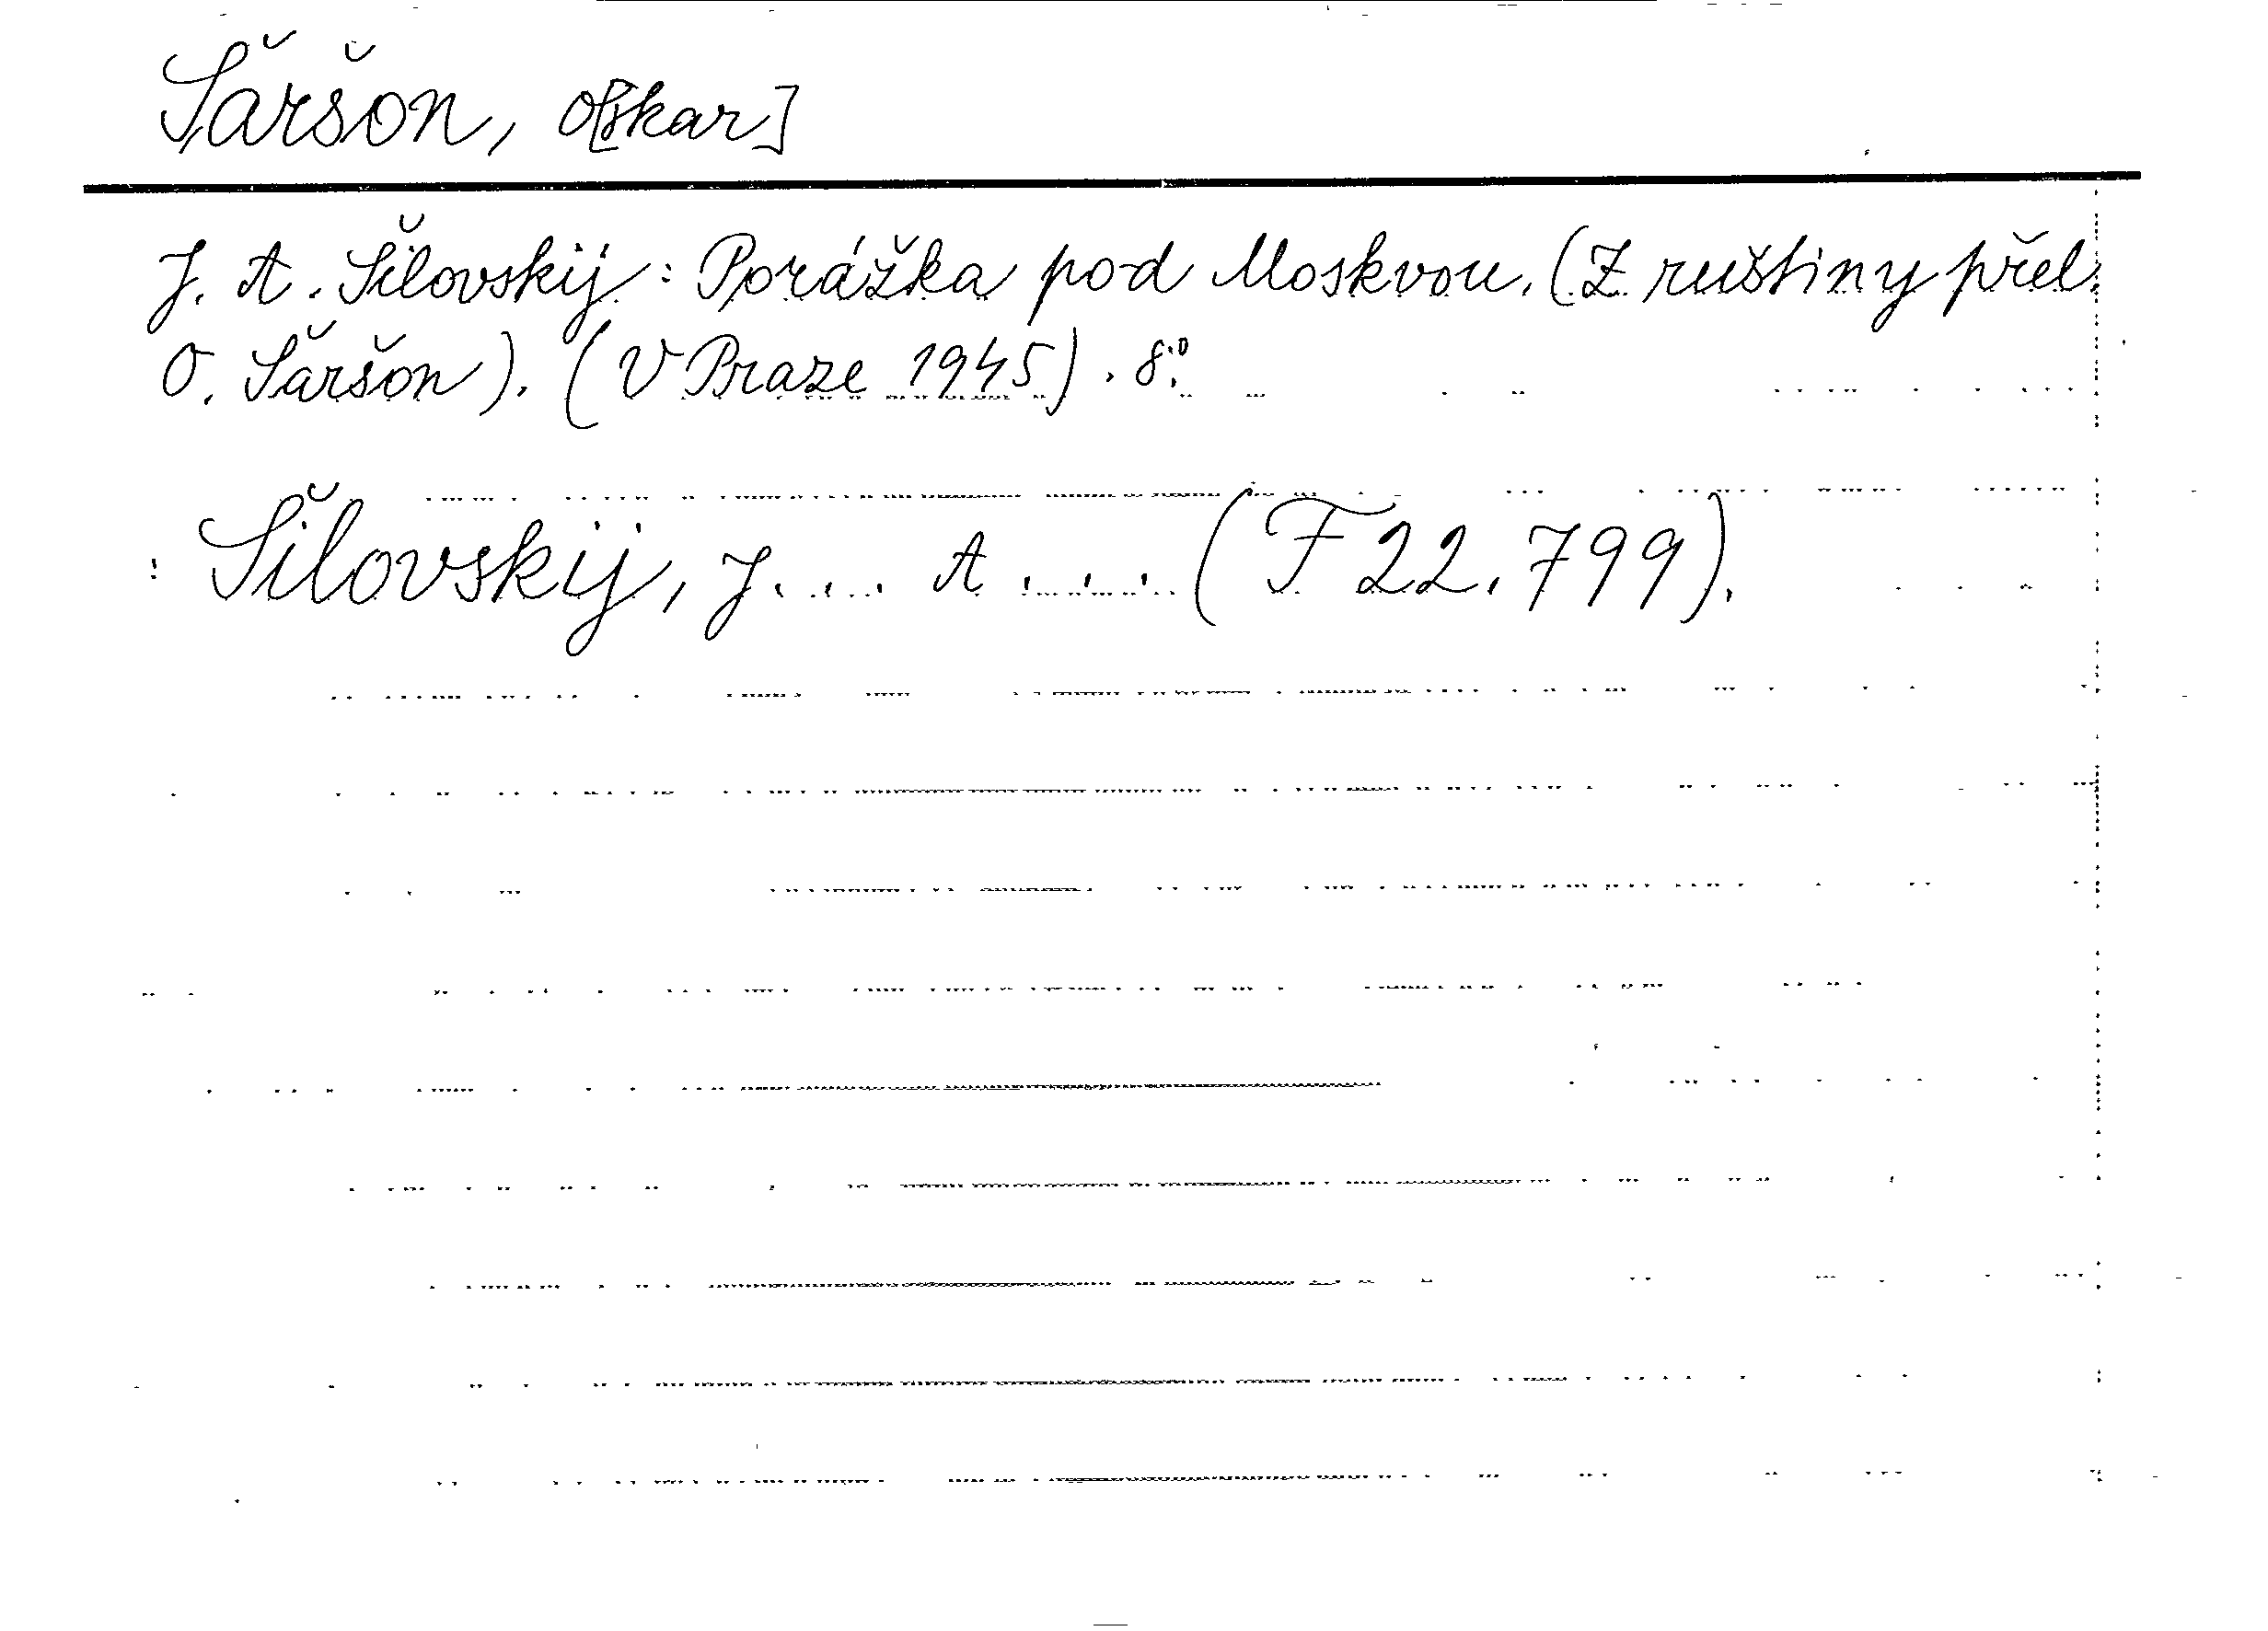 Šaršon, O[skar]
J. A. Šilovskij: Porážka pod Moskvou. (Z ruštiny přel.
O. Šaršon). (V Praze 1945). 8.°
: Šilovskij, J.... A.... (F 22.799).